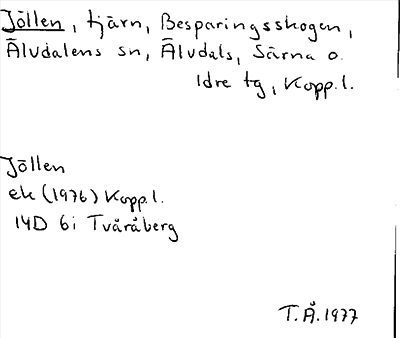 Jöllen, tjärn, Besparingsskogen,
Älvdalens sn, Älvdals, Särna o.
Idre tg, Kopp.l.
Jöllen
ek (1976) Kopp.l.
14D 6i Tvåråberg
T.Å.1977